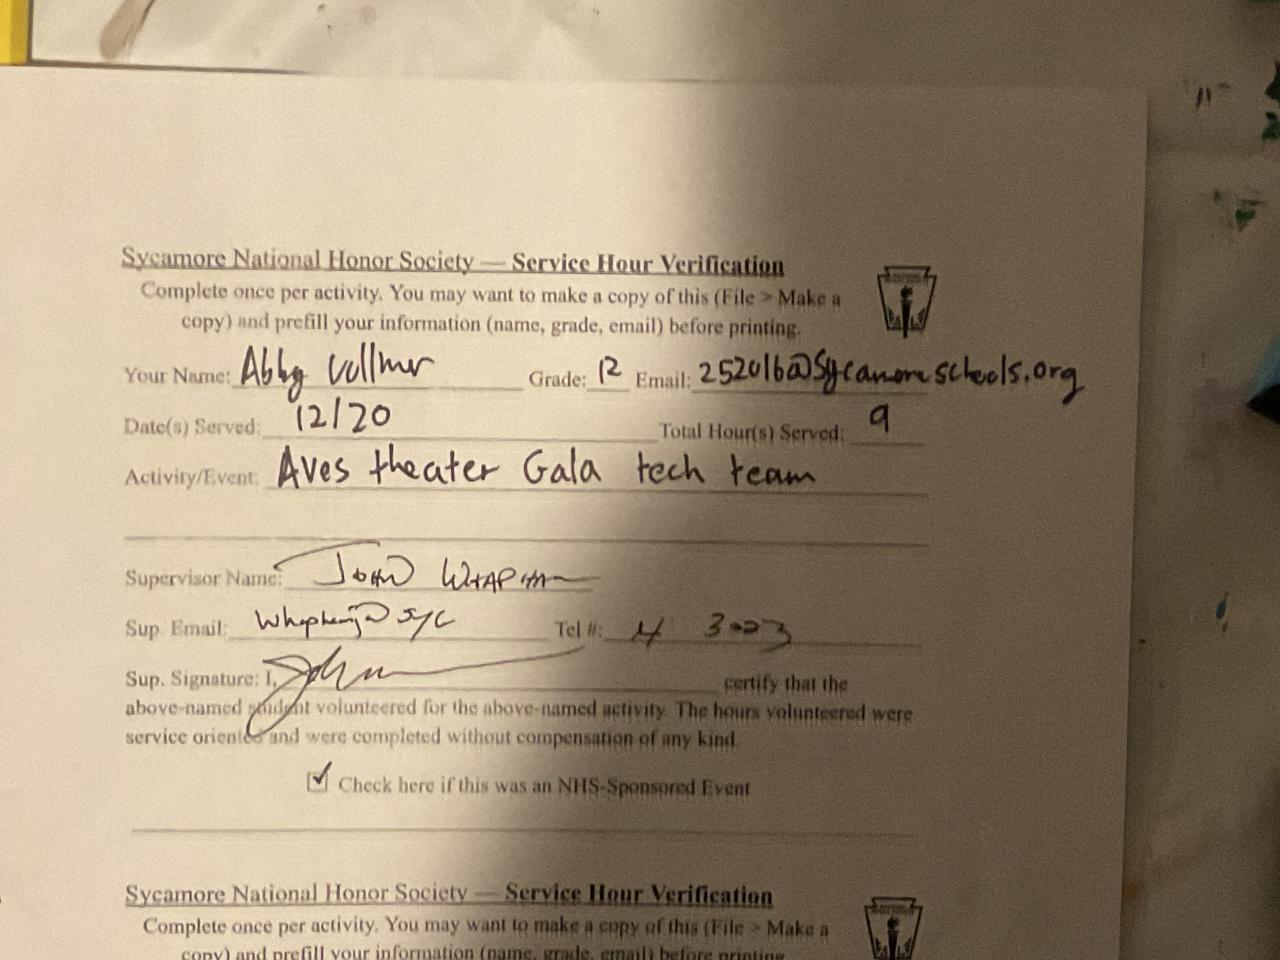 Sycamore National Honor Society — Service Hour Verification
Complete once per activity. You may want to make a copy of this (File > Make a
copy) and prefill your information (name, grade, email) before printing.
Your Name: Abby Vollmer Grade: 12 Email: 252016@Sycamoreschools.org
Date(s) Served: 12/20 Total Hour(s) Served: 9
Activity/Event: Aves theater Gala tech team
Supervisor Name: John
Sup. Email: Tel #:
Sup. Signature: I, certify that the
above-named student volunteered for the above-named activity. The hours volunteered were
service oriented and were completed without compensation of any kind.
Check here if this was an NHS-Sponsored Event
Sycamore National Honor Society — Service Hour Verification
Complete once per activity. You may want to make a copy of this (File > Make a
copy) and prefill your information (name, grade, email) before printing.